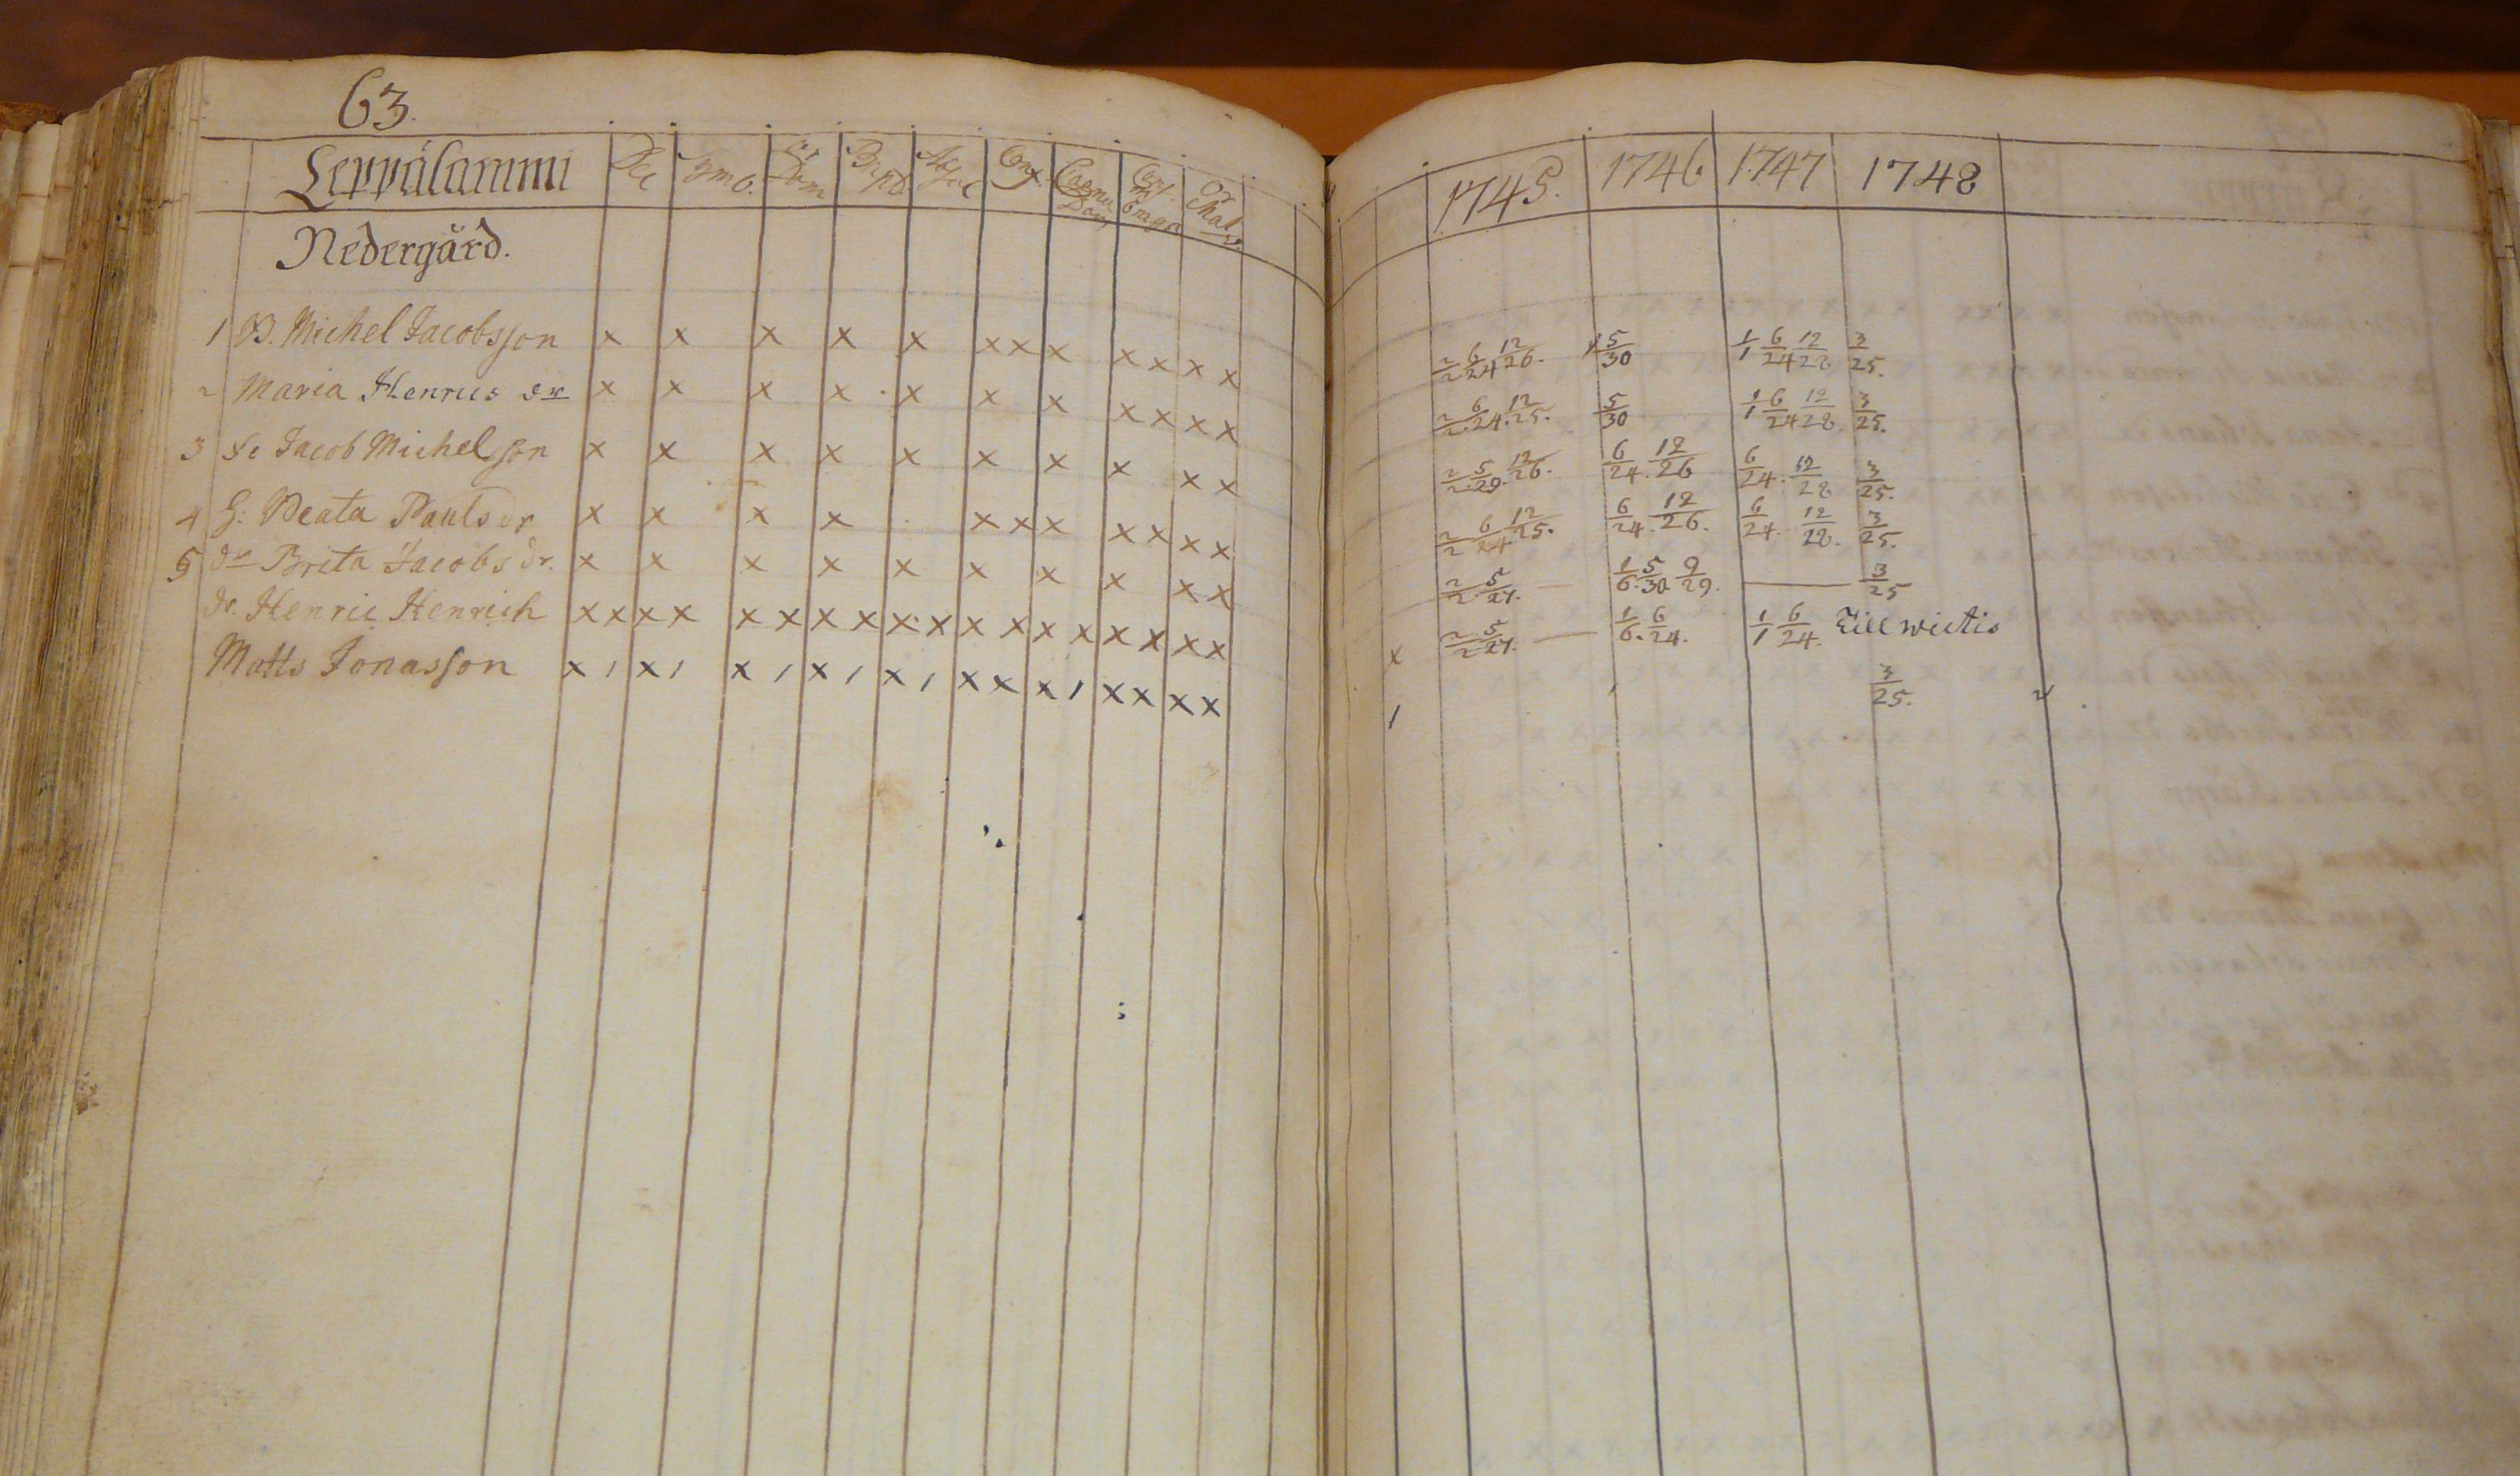 63.
Leppälammi
Or Dom
Bapt
Absol
Conf
Coena Dom
1745. 1746 1747 1748
Nedergård.
1 B. Michel Jacobsson x x x x x x x x x x x x 2/2 6/24 12/26. 5/30 1/1 6/24 12/28 3/25.
2 Maria Henrics dr x x x x x x x x x x x 2/2. 6/24. 12/25. 5/30 1/1 6/24 12/28 3/25.
3 Se Jacob Michelsson x x x x x x x x x x 2/2. 5/29. 12/26. 6/24. 12/26 6/24. 12/28 3/25.
4 H: Beata Pauls dr x x x x x x x x x x x 2/2 6/24 12/25. 6/24. 12/26. 6/24. 12/28. 3/25.
5 dr Brita Jacobs dr. x x x x x x x x x x 2/2. 5/27. — 1/6. 5/30 9/29. — 3/25
dr. Henric Henrich x x x x x x x x x x x x x x x x x x x 2/2 5/27. — 1/6. 6/24. 1/1 6/24. Till wictis
Matts Jonasson x 1 x 1 x 1 x 1 x 1 x x x 1 x x x x 1 3/25.